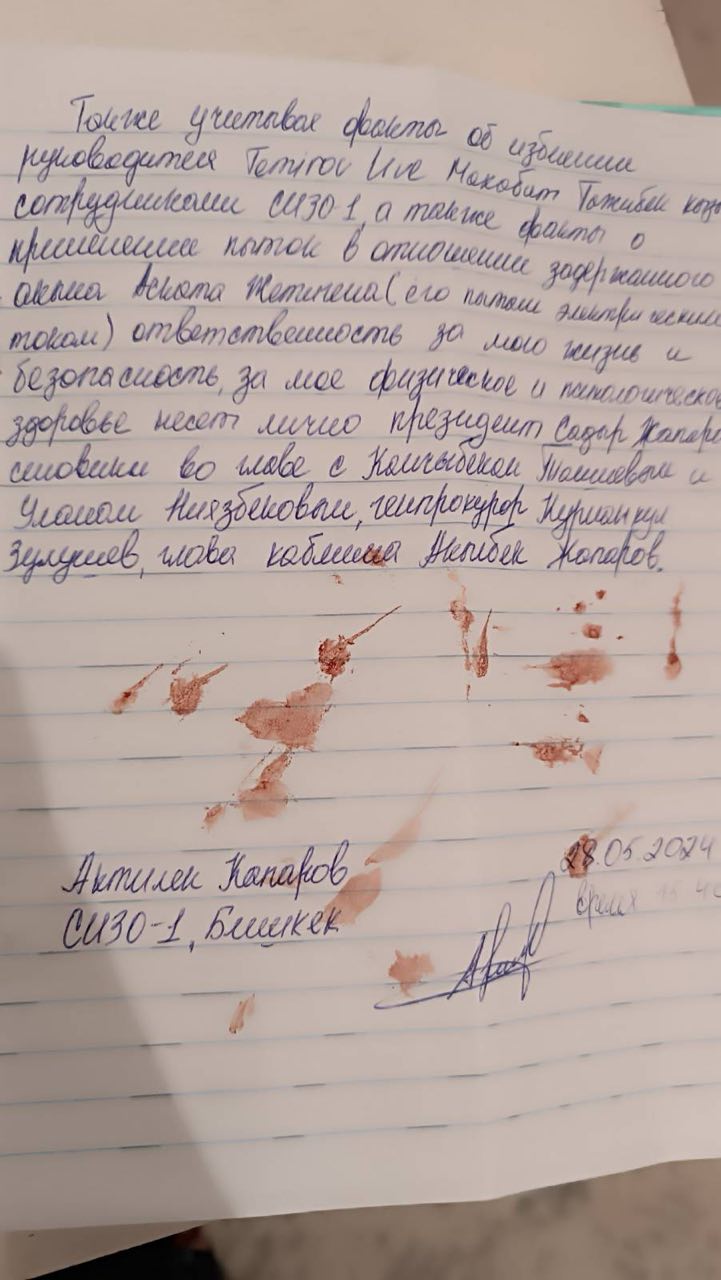 Также учитывая факты об избиении
руководителя Temirov Live Махабат Тажибек кызы
сотрудниками СИЗО 1, а также факты о
применении пыток в отношении задержанного
акына Аската Жетигена (его пытали электрическим
током) ответственность за мою жизнь и
безопасность, за мое физическое и психологическое
здоровье несет лично президент Садыр Жапаро
силовики во главе с Камчыбеком Ташиевым и
Уланом Ниязбековым, генпрокурор Курманкул
Зулушев, глава кабмина Акылбек Жапаров.
Актилек Капаров
СИЗО-1, Бишкек
28.05.2024
время 15 40